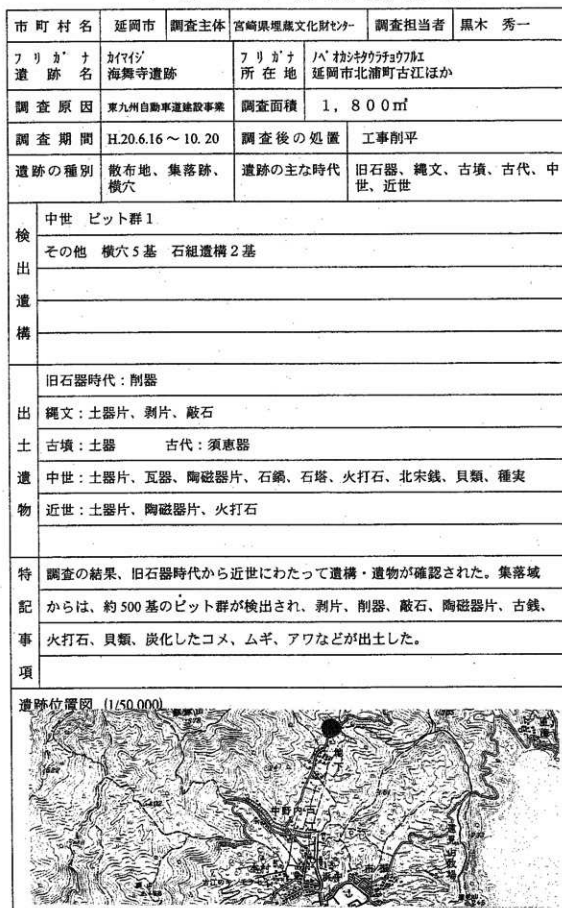 市町村名 延岡市 調査主体 宮崎県埋蔵文化財センター 調査担当者 黒木 秀一
フリガナ カイマイジ フリガナ ノベオカシキタウラチョウフルエ
遺跡名 海舞寺遺跡 所在地 延岡市北浦町古江ほか
調査原因 東九州自動車道建設事業 調査面積 1,800㎡
調査期間 H.20.6.16～10.20 調査後の処置 工事削平
遺跡の種別 散布地、集落跡、横穴 遺跡の主な時代 旧石器、縄文、古墳、古代、中世、近世
検出遺構
中世 ピット群1
その他 横穴5基 石組遺構2基
出土遺物
旧石器時代：削器
縄文：土器片、剥片、敲石
古墳：土器 古代：須恵器
中世：土器片、瓦器、陶磁器片、石鍋、石塔、火打石、北宋銭、貝類、種実
近世：土器片、陶磁器片、火打石
特記事項
調査の結果、旧石器時代から近世にわたって遺構・遺物が確認された。集落域
からは、約500基のピット群が検出され、剥片、削器、敲石、陶磁器片、古銭、
火打石、貝類、炭化したコメ、ムギ、アワなどが出土した。
遺跡位置図 (1/50,000)